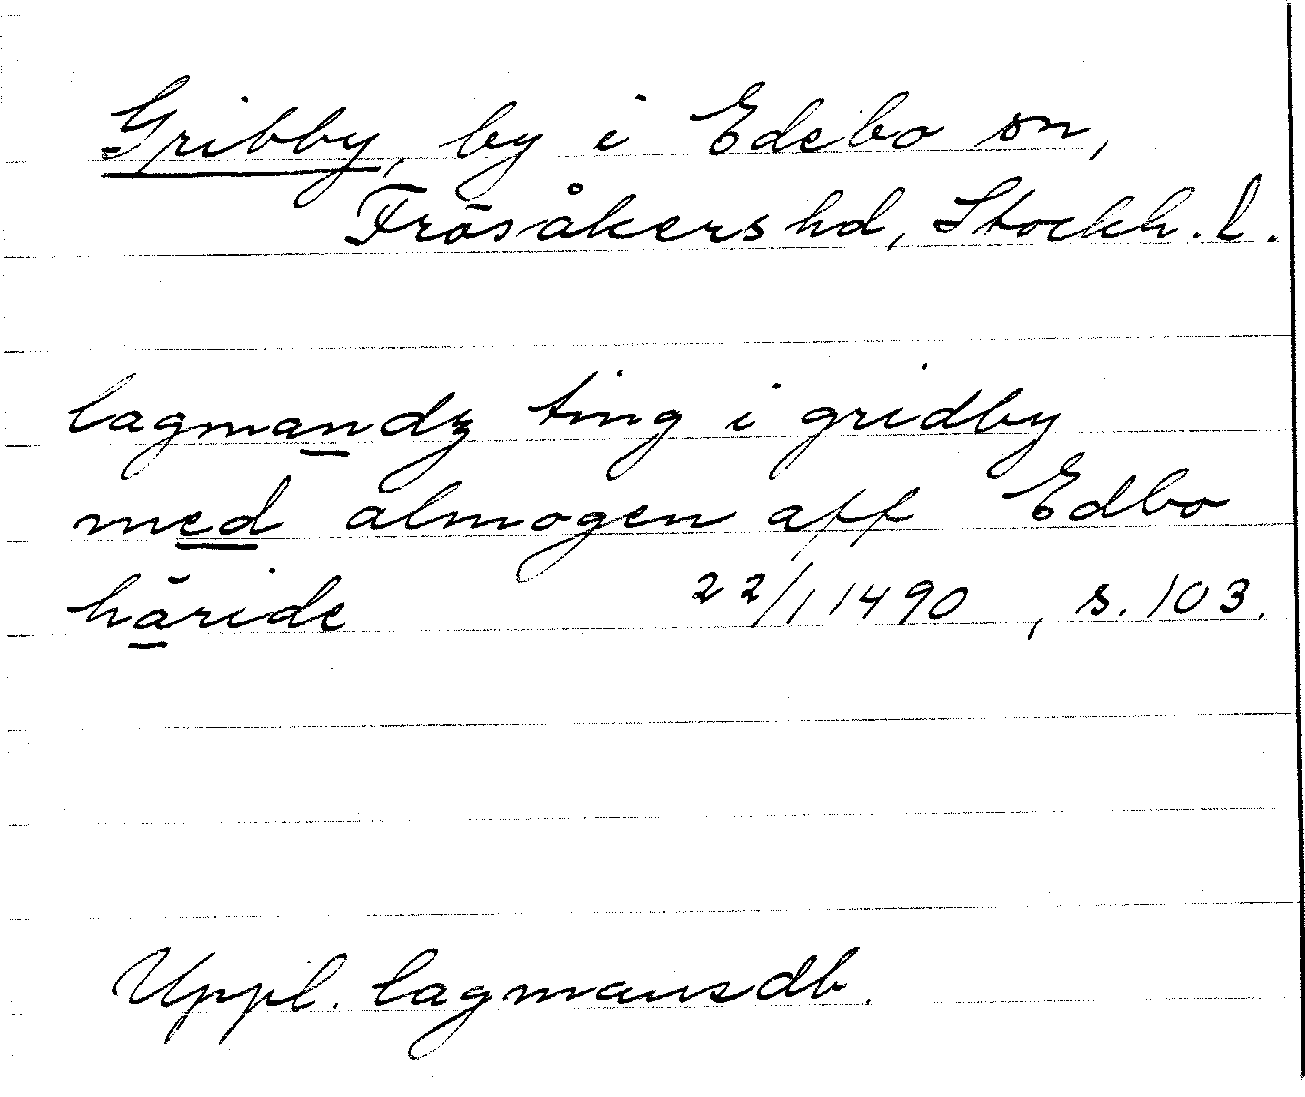 Gribby, by i Edebo sn,
Frösåkers hd, Stockh. l.
lagmandz ting i gridby
med almogen aff Edbo
häride 22/1 1490, s. 103.
Uppl. lagmansdb.